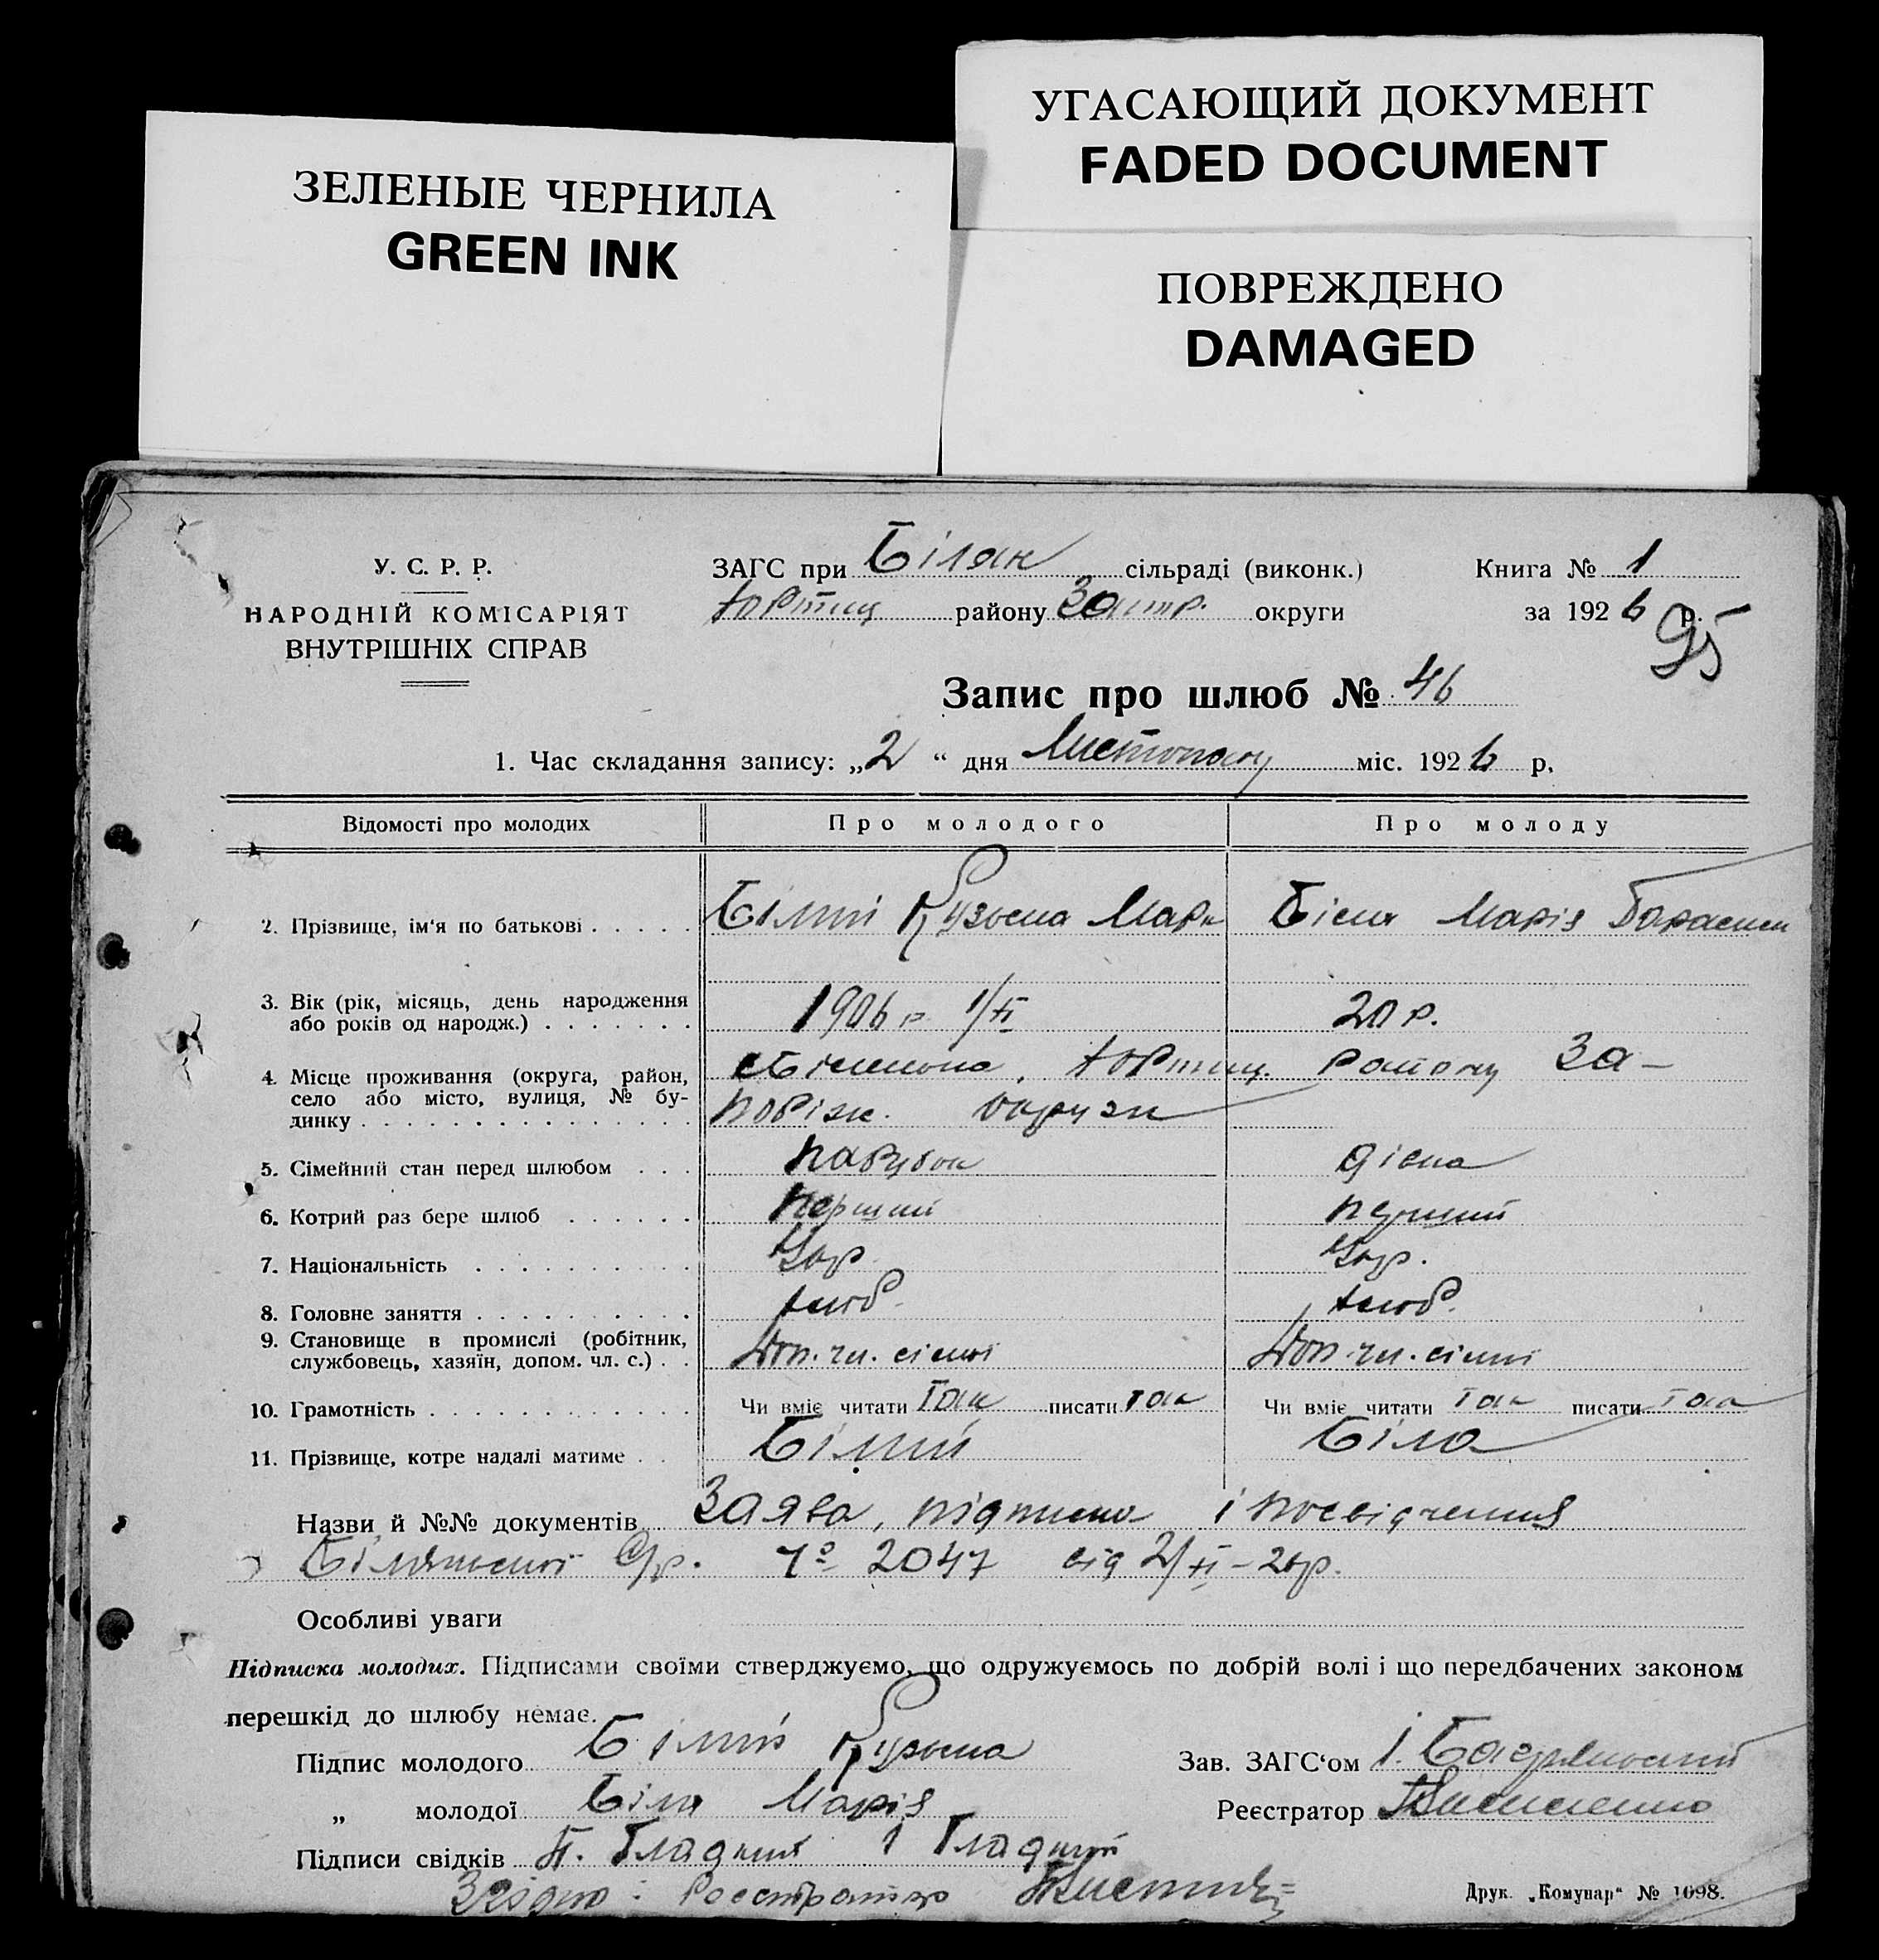 УГАСАЮЩИЙ ДОКУМЕНТ
FADED DOCUMENT
ЗЕЛЕНЫЕ ЧЕРНИЛА
GREEN INK
ПОВРЕЖДЕНО
DAMAGED
У. С. Р. Р.
НАРОДНІЙ КОМІСАРІЯТ
ВНУТРІШНІХ СПРАВ
ЗАГС при Білян сільраді (виконк.)
Хортиц району Запор. округи
Книга № 1
за 1926 р.
95
Запис про шлюб № 46
1. Час складання запису: „2 “ дня Листопаду міс. 1926 р.
Відомості про молодих Про молодого Про молоду
2. Прізвище, ім'я по батькові Білий Кузьма Марк Біла Марія
3. Вік (рік, місяць, день народження
або років од народж.) 1906 р. 1/XI 20 р.
4. Місце проживання (округа, район,
село або місто, вулиця, № бу-
динку Хортиц. району За-
поріж. округи
5. Сімейний стан перед шлюбом парубок дівка
6. Котрий раз бере шлюб перший перший
7. Національність Укр. Укр.
8. Головне заняття хліб. хліб.
9. Становище в промислі (робітник,
службовець, хазяїн, допом. чл. с.) Доп. чл. сімьї Доп. чл. сімьї
10. Грамотність Чи вміє читати так писати так Чи вміє читати так писати так
11. Прізвище, котре надалі матиме Білий Біла
Назви й №№ документів Заява, підписка і посвідчення
Білянської С/р. № 2047 від 2/XI-26р.
Особливі уваги
Підписка молодих. Підписами своїми стверджуємо, що одружуємось по добрій волі і що передбачених законом
перешкід до шлюбу немає.
Підпис молодого Білий Кузьма
Зав. ЗАГС'ом І.
„ молодої Біла Марія
Реєстратор
Підписи свідків П. Гладкий і Гладкий
Згідно: Реєстратор
Друк. „Комунар“ № 1098.